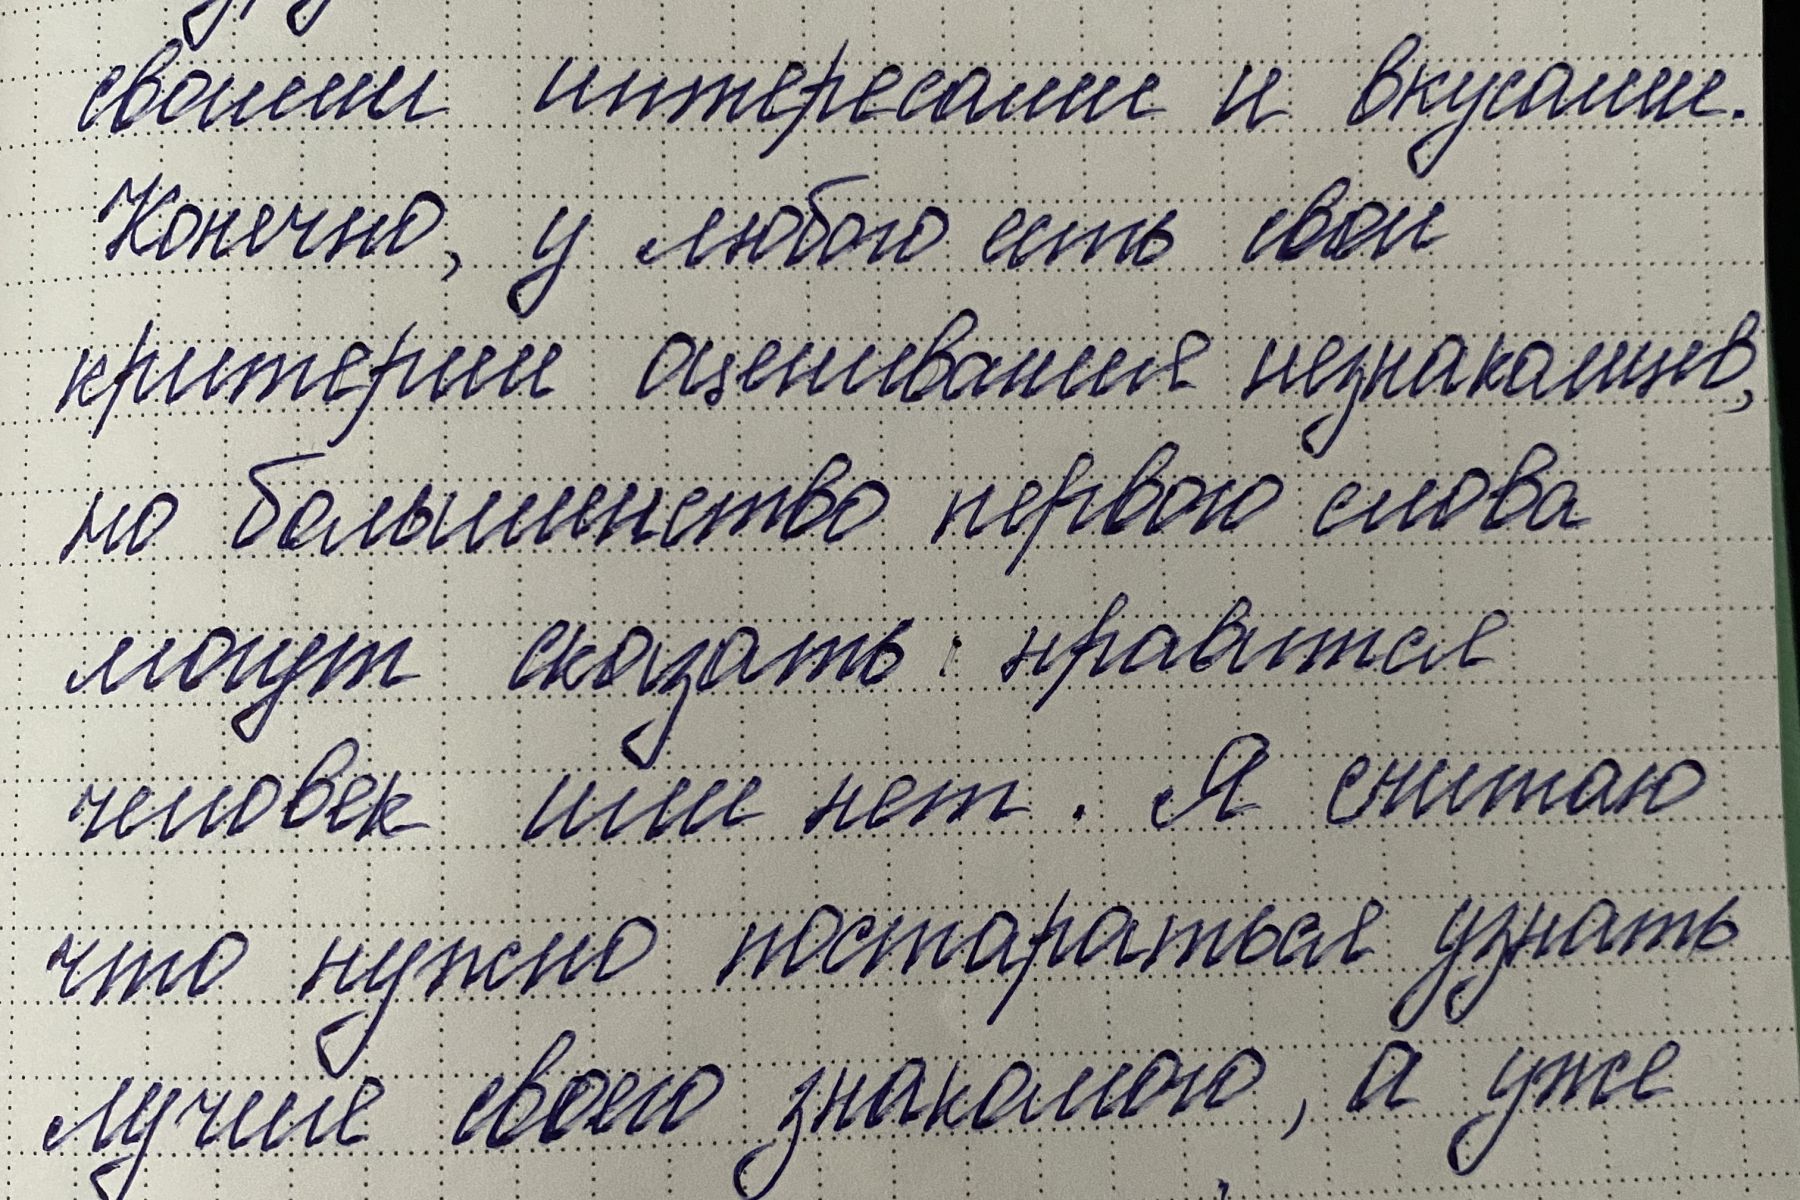 своими интересами и вкусами.
Конечно, у любого есть свои
критерии оценивания незнакомцев,
но большинство первого слова
могут сказать: нравится
человек или нет. Я считаю
что нужно постараться узнать
лучше своего знакомого, а уже